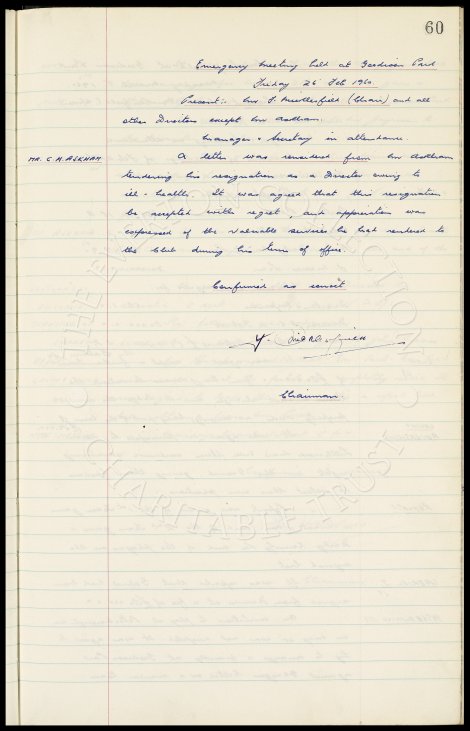 60
Emergency Meeting held at Goodison Park
Friday 26 Feb 1960.
Present:- Mr F. Micklesfield (Chair) and all
other Directors except Mr Askham.
Manager & Secretary in attendance.
MR. C. A. ASKHAM A letter was considered from Mr Askham
tendering his resignation as a Director owing to
ill-health. It was agreed that this resignation
be accepted with regret, and appreciation was
expressed of the valuable services he had rendered to
the Club during his term of office.
Confirmed as correct
Chairman.
THE EVERTON COLLECTION
CHARITABLE TRUST